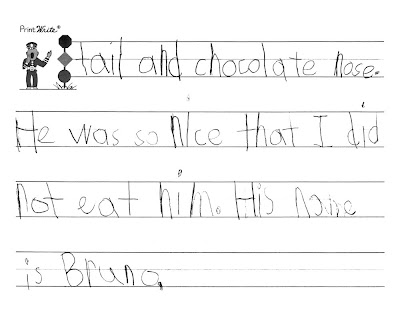 PrintWrite®
tail and chocolate nose.
He was so Nice that I did
not eat him. His name
is Bruno.